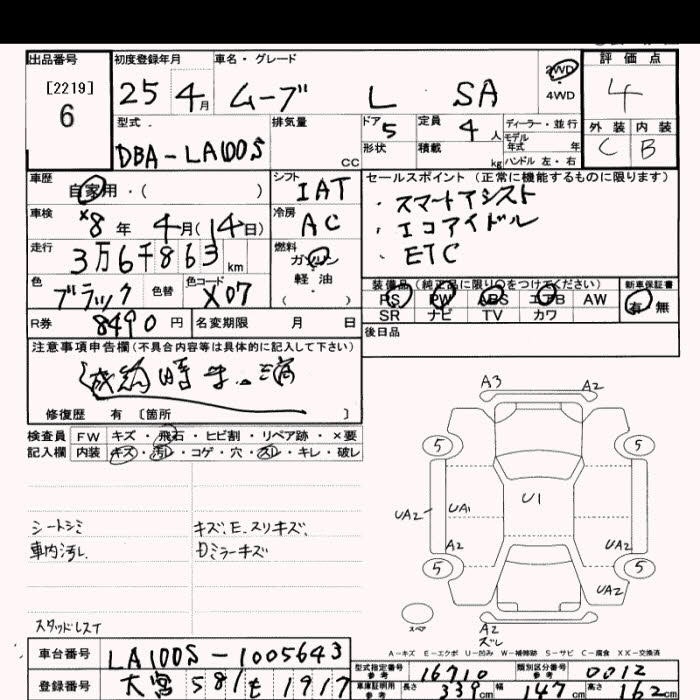 出品番号 初度登録年月 車名・グレード 評価点
[2219] 6 25年4月 ムーブ L SA 2WD 4WD 4
型式 排気量 ドア 5 定員 4人 ディーラー・並行 外装 内装
DBA-LA100S cc 形状 積載 kg モデル年式 年 ハンドル 左・右 C B
車歴 自家用・( ) シフト IAT セールスポイント(正常に機能するものに限ります)
車検 *8年4月(14日) 冷房 AC ・スマートアシスト
・エコアイドル
走行 3万6千863km 燃料 ガソリン 軽油 ( ) ・ETC
色 ブラック 色替 色コード X07 装備品(純正品に限り○をつけてください) 新車保証書
PS PW ABS エアB AW 有 無
R券 8490円 名変期限 月 日 SR ナビ TV カワ
後日品
注意事項申告欄(不具合内容等は具体的に記入して下さい)
修復歴 有 〔箇所 〕
検査員 FW キズ・飛石・ヒビ割・リペア跡・×要
記入欄 内装 キズ・汚レ・コゲ・穴・スレ・キレ・破レ
シートシミ キズ、E、スリキズ、
車内汚レ Dミラーキズ
スタッドレスイ
A3 A2
5 5
U1
UA2 UA1
A2 UA2
5 5
UA2
スペア A2
ズレ
A-キズ E-エクボ U-凹み W-補修跡 S-サビ C-腐食 XX-交換済
車台番号 LA100S-1005643 型式指定番号 参考 16710 類別区分番号 参考 0012
登録番号 大宮 581 も 1917 車庫証明用 参考 長さ 339cm 幅 147cm 高さ 162cm